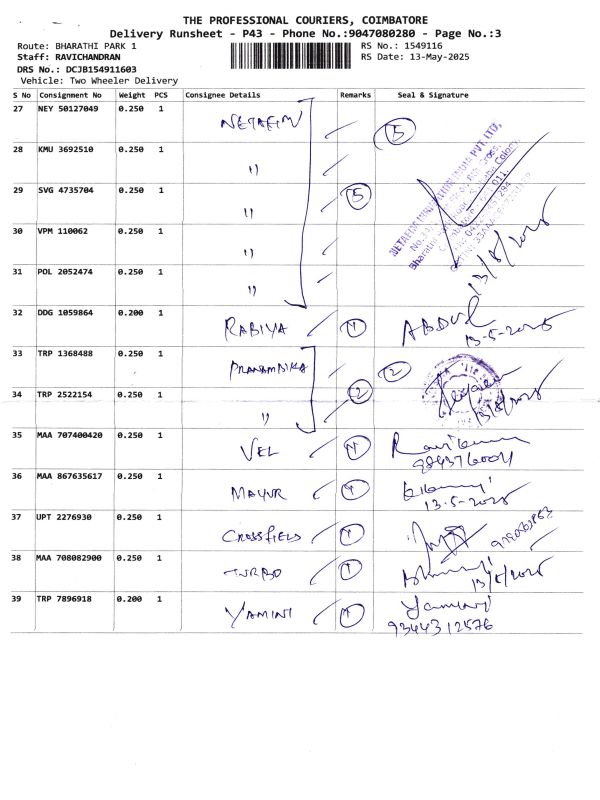 THE PROFESSIONAL COURIERS, COIMBATORE
Delivery Runsheet - P43 - Phone No.:9047080280 - Page No.:3
Route: BHARATHI PARK 1
RS No.: 1549116
Staff: RAVICHANDRAN
RS Date: 13-May-2025
DRS No.: DCJB154911603
Vehicle: Two Wheeler Delivery
S No Consignment No Weight PCS Consignee Details Remarks Seal & Signature
27 NEY 50127049 0.250 1 NETAFIM 5
28 KMU 3692510 0.250 1 "
29 SVG 4735704 0.250 1 " 5
30 VPM 110062 0.250 1 "
31 POL 2052474 0.250 1 "
13/5/2025
32 DDG 1059864 0.200 1 RABIYA 1 ABDUL
13-5-2025
33 TRP 1368488 0.250 1 PRANAMBIKA 2
34 TRP 2522154 0.250 1 " 2 13/5/2025
35 MAA 707400420 0.250 1 VEL 1
36 MAA 867635617 0.250 1 MAYUR 1
13-5-2025
37 UPT 2276930 0.250 1 CROSSFIELD 1
38 MAA 708082900 0.250 1 TURBO 1
13/5/2025
39 TRP 7896918 0.200 1 YAMINI 1 Yamini
9344312576